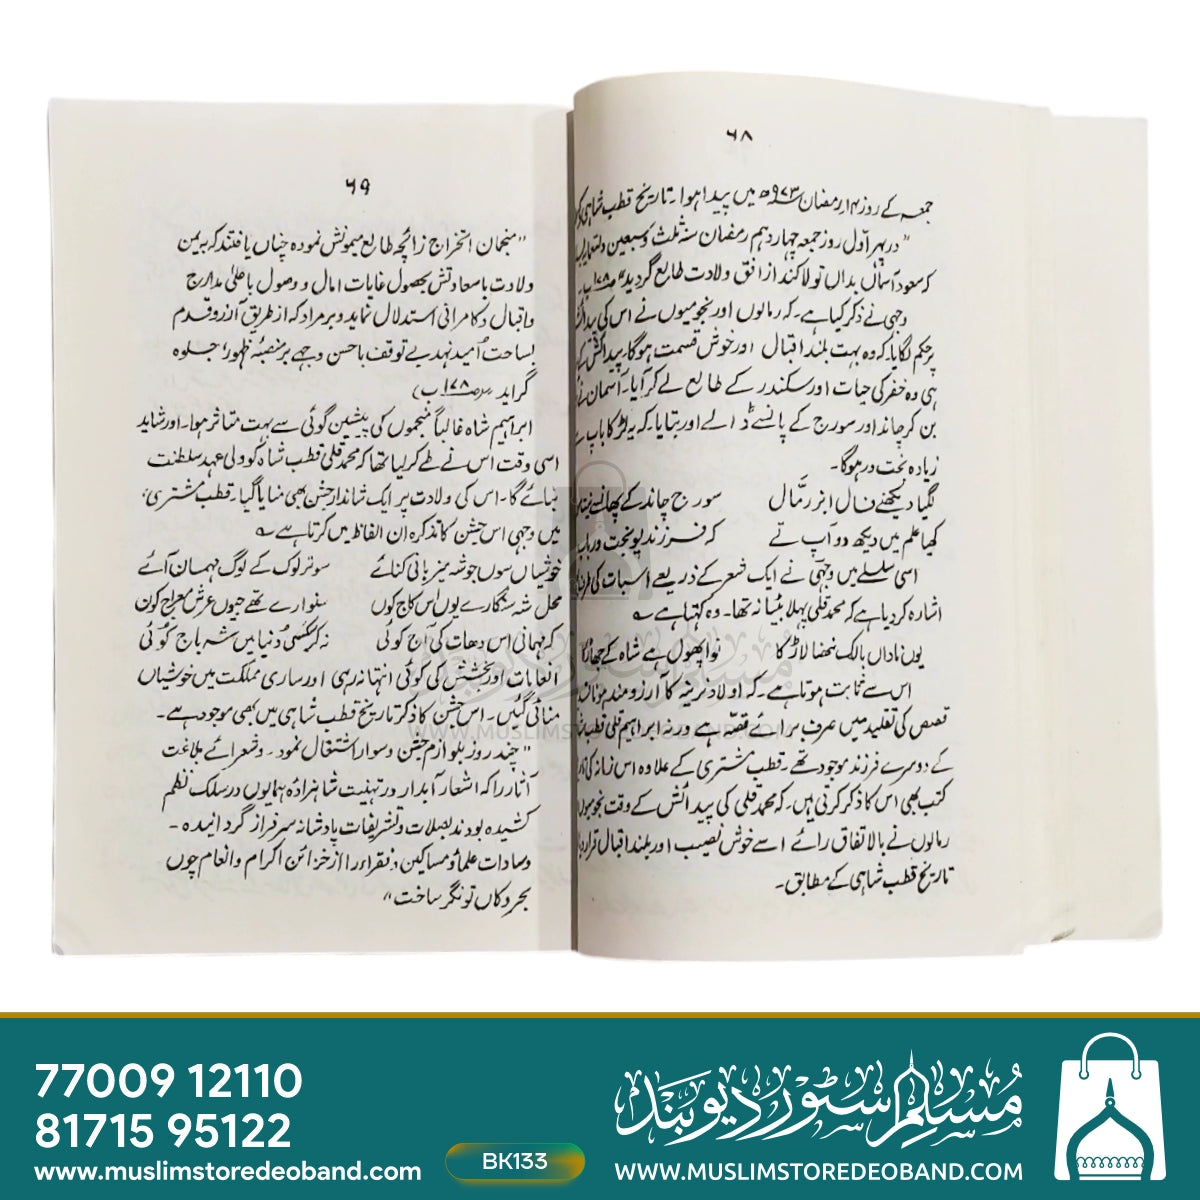 ۶۸
جمعہ کے روز ۱۴ رمضان ۹۷۳ھ میں پیدا ہوا۔ تاریخ قطب شاہی
"درپہر اول روز جمعہ چہاردہم رمضان سنہ ثلث و سبعین
کہ سعود آسمان بداں تولا کند از افق ولادت طالع گردید" ص۱۷۸ ب۔
وجہی نے ذکر کیا ہے۔ کہ رمالوں اور نجومیوں نے اس کی
پر حکم لگایا۔ کہ وہ بہت بلند اقبال اور خوش قسمت ہوگا۔ پیدائش
ہی وہ خضر کی حیات اور سکندر کے طالع لے کر آیا۔ آسمان نے
بن کر چاند اور سورج کے پانسے ڈالے اور بتایا۔ کہ یہ لڑکا باپ سے
زیادہ بخت ور ہوگا۔
لگیا دیکھنے فال انبر رمّال سورج چاند کے پھانسے
کھیا علم میں دیکھ وو آپ تے کہ فرزند یو بخت ور
اسی سلسلے میں وجہی نے ایک شعر کے ذریعے اسبات کی
اشارہ کر دیا ہے کہ محمد قلی پہلا بیٹا نہ تھا۔ وہ کہتا ہے ؎
یوں ناداں بالک ننھا لاڑ کا نوا پھول ہے شاہ کے جھاڑ کا
اس سے ثابت ہوتا ہے۔ کہ اولاد نرینہ کا آرزو مند ہونا
قصص کی تقلید میں صرف برائے قصّہ ہے ورنہ ابراہیم قلی قطب
کے دوسرے فرزند موجود تھے۔ قطب مشتری کے علاوہ اس زمانہ کی
کتب بھی اس کا ذکر کرتی ہیں۔ کہ محمد قلی کی پیدائش کے وقت نجومیوں
رمالوں نے بالاتفاق رائے اسے خوش نصیب اور بلند اقبال قرار
تاریخ قطب شاہی کے مطابق۔
۶۹
"منجمان استخراج زائچہ طالع میمونش نمودہ چناں یافتند کہ بہ یمن
ولادت با سعادتش بحصول غایات امال و وصول با علیٰ مدارج
و اقبال و کامرانی استدلال نماید و ہر مراد کہ از طریق آرزو قدم
بساحت اُمید نہد بے توقف با حسن وجہے بر منصۂ ظہور جلوہ
گر آید ص۱۷۸ ب)
ابراہیم شاہ غالباً منجموں کی پیشین گوئی سے بہت متاثر ہوا۔ اور شاید
اسی وقت اس نے طے کر لیا تھا کہ محمد قلی قطب شاہ کو ولی عہد سلطنت
بنائے گا۔ اس کی ولادت پر ایک شاندار جشن بھی منایا گیا۔ قطب مشتری
میں وجہی اس جشن کا تذکرہ ان الفاظ میں کرتا ہے ؎
خوشیاں سوں جو شہ میزبانی کنائے سو تر لوک کے لوگ مہمان آئے
محل شہ سنگارے یوں اس کاج کوں سنوارے تھے جیوں عرش معراج کون
کہ مہمانی اس دھات کی آج کوئی نہ کر کسی دُنیا میں شہ باج کوئی
انعامات اور بخشش کی کوئی انتہا نہ رہی اور ساری مملکت میں خوشیاں
منائی گئیں۔ اس جشن کا ذکر تاریخ قطب شاہی میں بھی موجود ہے۔
"چند روز بلوازم جشن و سوار اشتغال نمود۔ و شعرائے بلاغت
آثار را کہ اشعار آبدار در تہنیت شاہزادہ ہمایوں در سلک نظم
کشیدہ بودند بصلات و تشریفات پادشانہ سرفراز گردانیدہ۔
و سادات علماؤ مساکین و فقرا را از خزائن اکرام و انعام چوں
بحر و کاں تونگر ساخت"
WWW.MUSLIMSTOREDEOBAND.COM
77009 12110
81715 95122
www.muslimstoredeoband.com
BK133
مسلم سٹور دیوبند
WWW.MUSLIMSTOREDEOBAND.COM